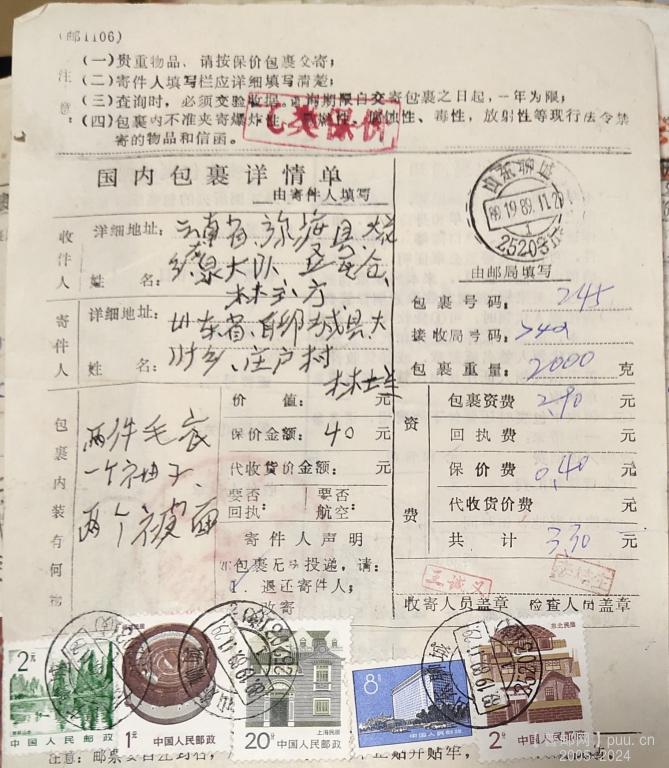 (邮1106)
注意：
(一)贵重物品、请按保价包裹交寄；
(二)寄件人填写栏应详细填写清楚；
(三)查询时，必须交验收据。查询期限自交寄包裹之日起，一年为限；
(四)包裹内不准夹寄爆炸性、易燃性、腐蚀性、毒性，放射性等现行法令禁
寄的物品和信函。
乙类保价
国内包裹详情单
由寄件人填写
收件人
详细地址：云南省 海县
大队
姓 名：
寄件人
详细地址：山东省 城县大
乡、庄户村
姓 名：
包裹内装有何物
两件毛衣
一个袖子
两个被面
价 值： 元
保价金额：40 元
代收货价金额： 元
要否回执：
要否航空：
寄件人声明
如包裹无法投递，请：
1. 退还寄件人；
改寄
山东聊城
1989.11.29
1
252000
由邮局填写
包裹号码：245
接收局号码：
包裹重量：2000 克
资费
包裹资费 2.90 元
回执费 元
保价费 0.40 元
代收货价费 元
共 计 3.30 元
王诚义
收寄人员盖章 检查人员盖章
2元
中国人民邮政
1元
中国人民邮政
上海民居
20分
中国人民邮政
8分
中国人民邮政
东北民居
2分
中国人民邮政
山东聊城
1989.11.29
252000
注意：邮票要自左到右，
贴齐贴牢，
邮网 | puu.cn
2005-2024